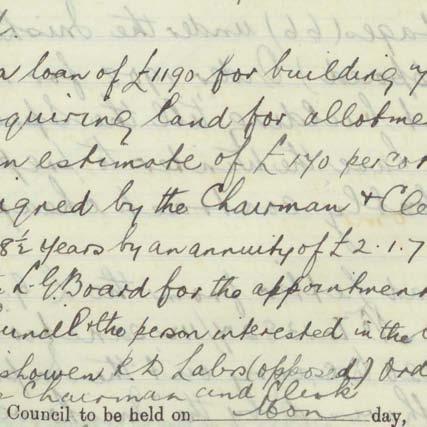 a loan of £1190 for building
quiring land for allotme
n estimate of £170 per cor
igned by the Chairman & Cle
8½ years by an annuity of £2.1.7
L.G. Board for the appointmen
ouncil & the person interested in the
ishowen R.D Labrs (opposed) Ord
Chairman and Clerk
Council to be held on Mon day,